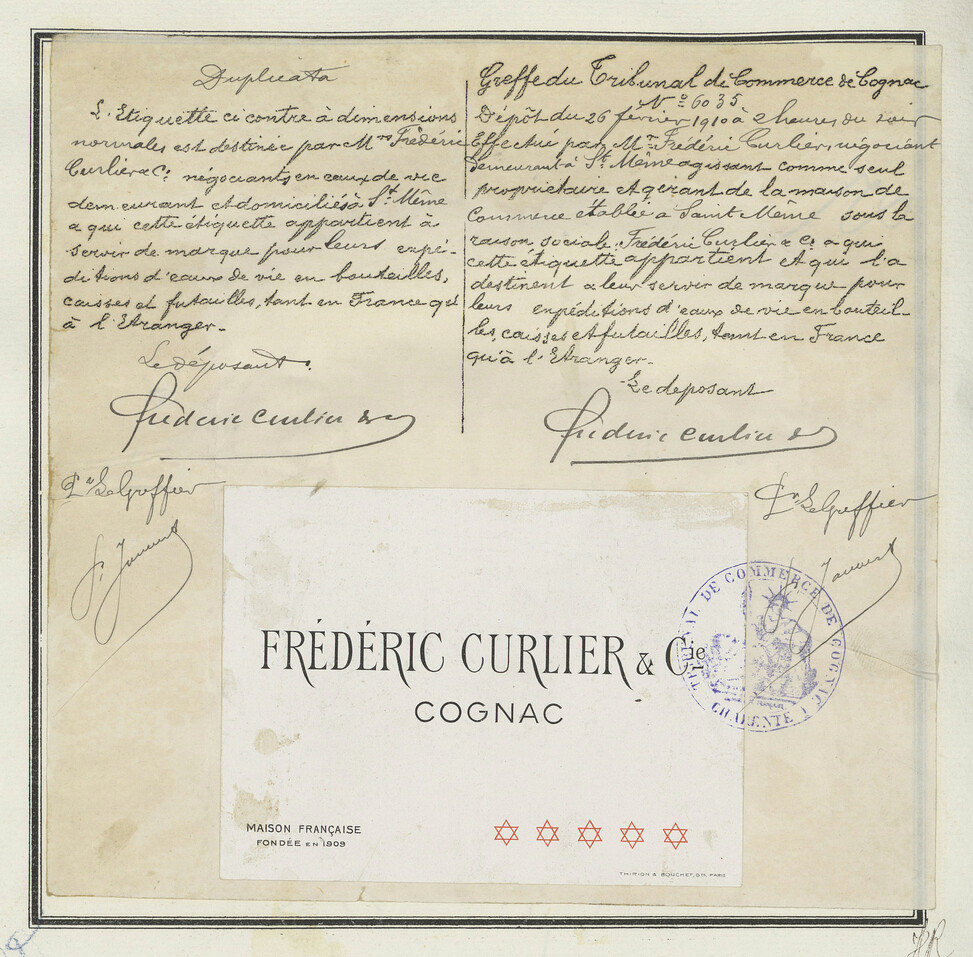 Duplicata
L'Etiquette ci contre à dimensions
normales est destinée par Mrs Frédéric
Curlier & Cie négociants en eaux de vie
demeurant et domiciliés à St Même
a qui cette étiquette appartient à
servir de marque pour leurs expé-
ditions d'eaux de vie en bouteilles,
caisses et futailles, tant en France qu'
à l'Etranger.
Le déposant.
Frédéric Curlier &
Pr Le Greffier
Greffe du Tribunal de Commerce de Cognac
No 6035
Dépôt du 26 février 1910 à 2 heures du soir
Effectué par Mr Frédéric Curlier, négociant
demeurant à St Même agissant comme seul
propriétaire et gérant de la maison de
Commerce établie à Saint Même sous la
raison sociale: Frédéric Curlier & Cie a qui
cette étiquette appartient et qui l'a
destinent a leur servir de marque pour
leurs expéditions d'eaux de vie en bouteil-
les, caisses et futailles, tant en France
qu'à l'Etranger.
Le deposant
Frédéric Curlier &
Pr Le Greffier
FRÉDÉRIC CURLIER & Cie
COGNAC
MAISON FRANÇAISE
FONDÉE EN 1909
THIRION & BOUCHET, GR. PARIS
TRIBUNAL DE COMMERCE DE COGNAC
CHARENTE
HR